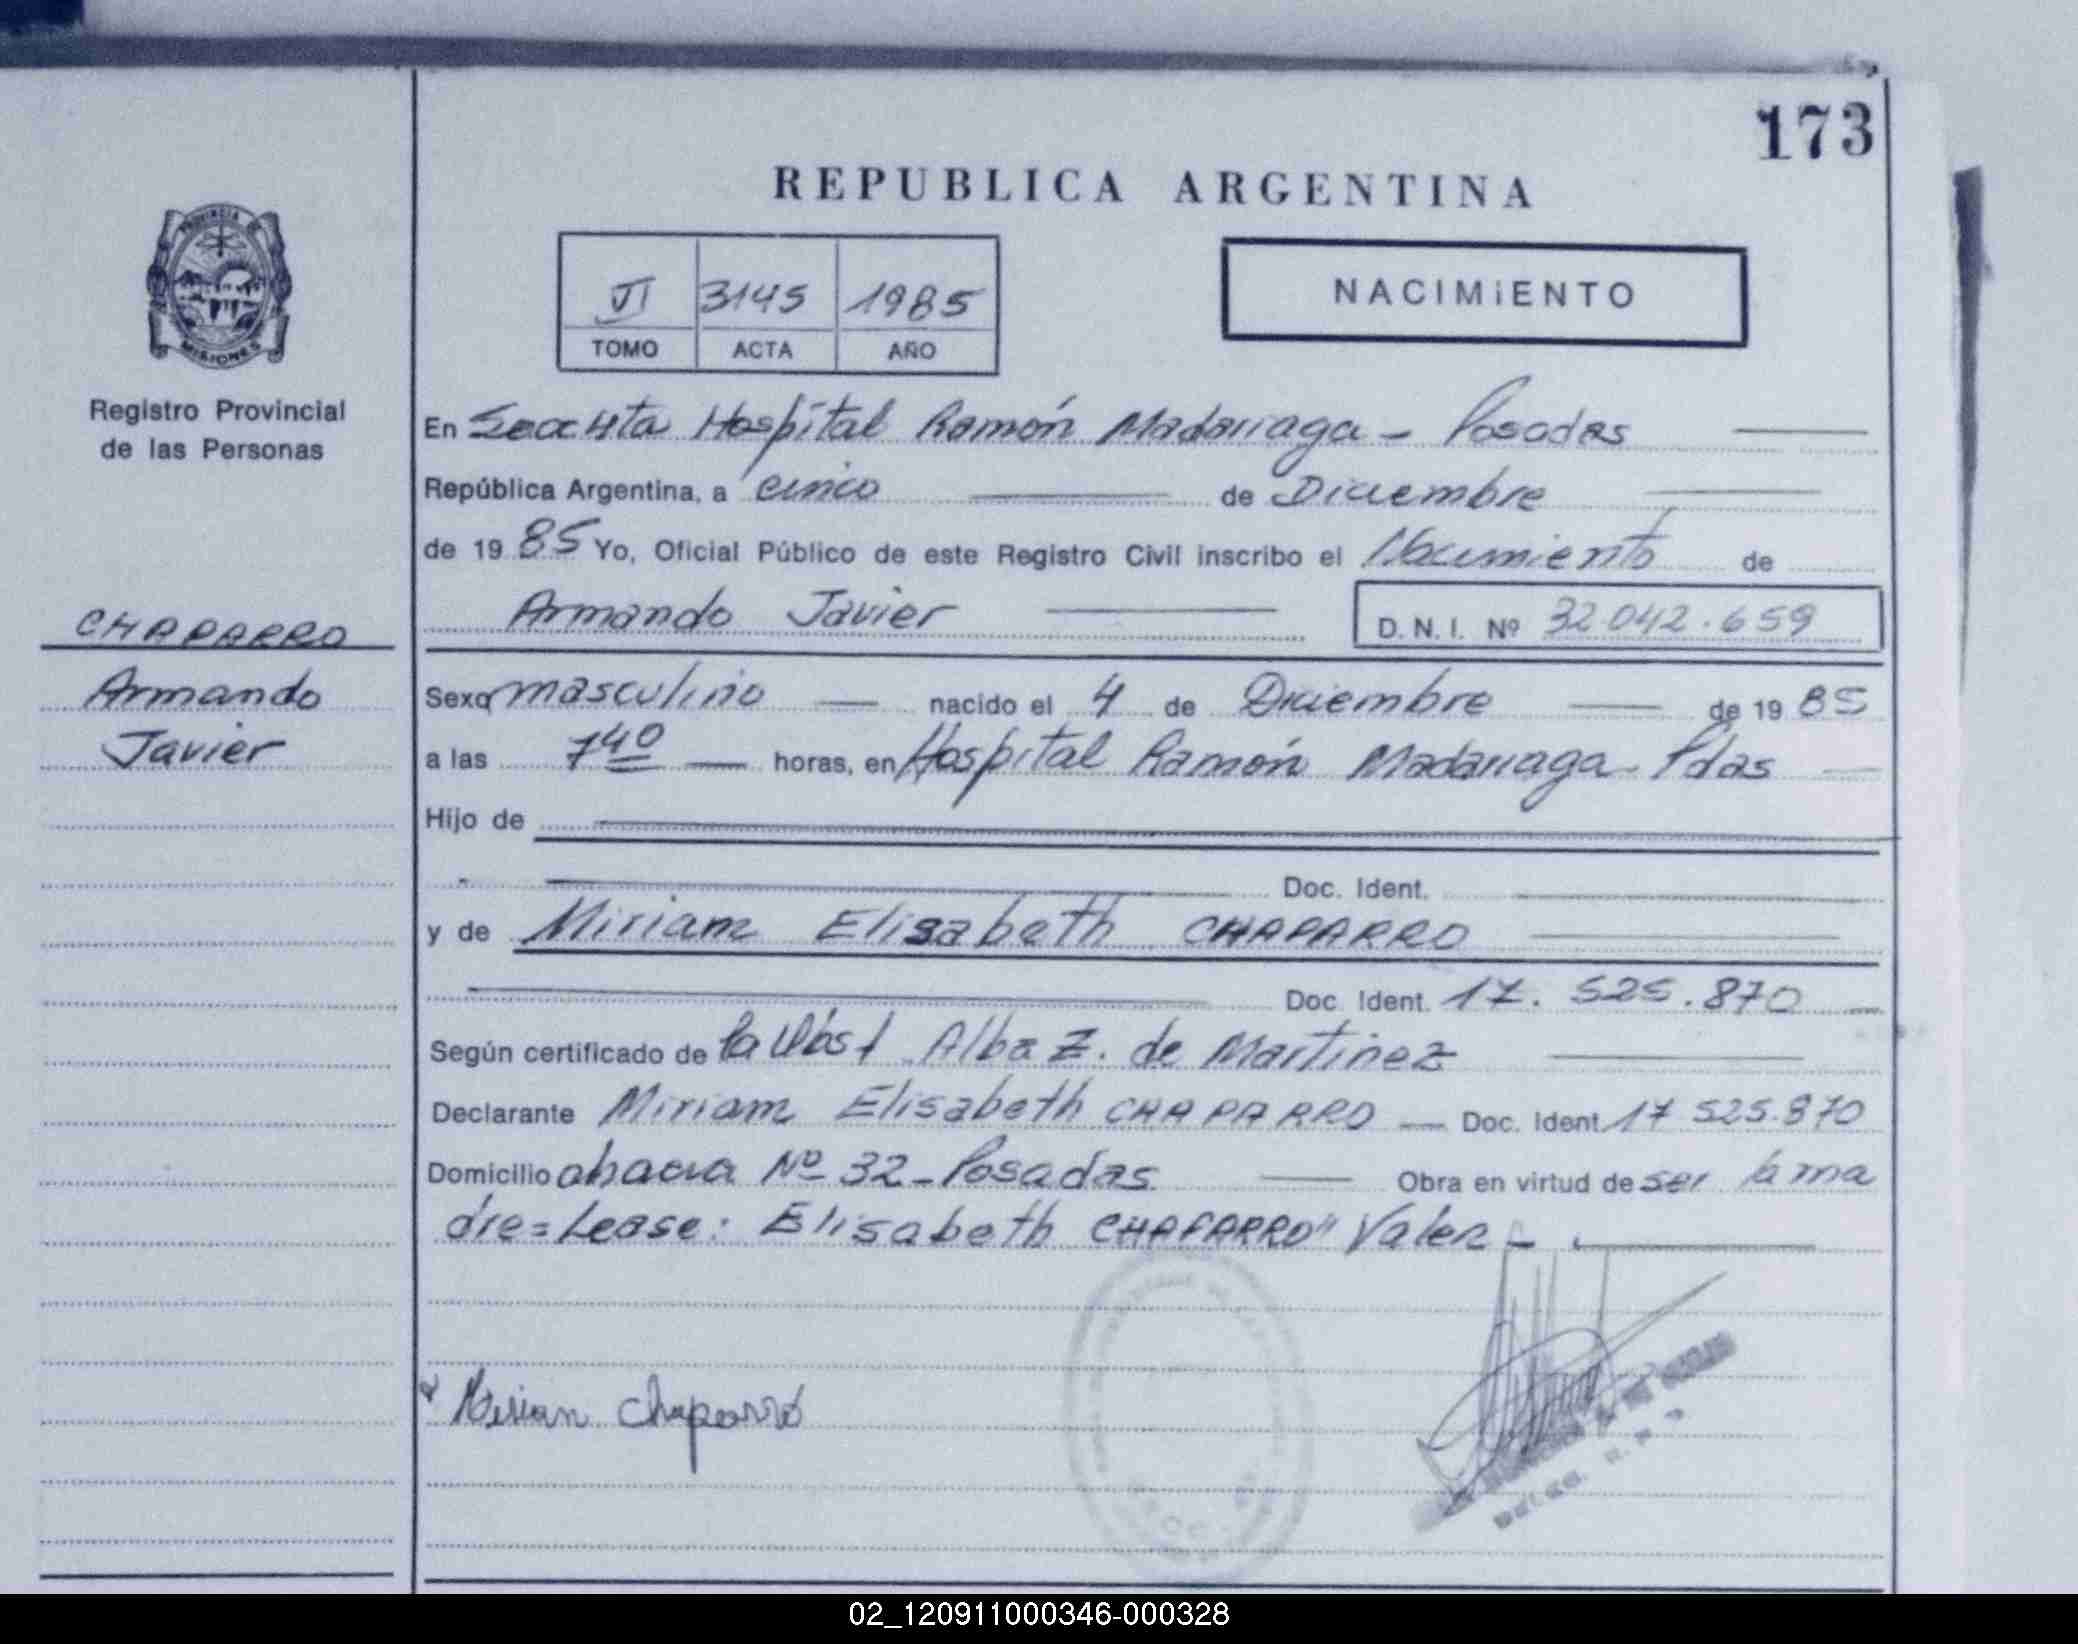 173
REPUBLICA ARGENTINA
PROVINCIA DE
MISIONES
Registro Provincial
de las Personas
VI 3145 1985
TOMO ACTA AÑO
NACIMIENTO
En Secc 4ta Hospital Ramón Madariaga - Posadas
República Argentina, a cinco de Diciembre
de 19 85 Yo, Oficial Público de este Registro Civil inscribo el Nacimiento de
Armando Javier D. N. I. Nº 32.042.659
CHAPARRO
Armando
Javier
Sexo masculino nacido el 4 de Diciembre de 19 85
a las 7 40 horas, en Hospital Ramón Madariaga - Pdas
Hijo de
Doc. Ident.
y de Miriam Elisabeth CHAPARRO
Doc. Ident. 17. 525.870
Según certificado de la Obst Alba Z. de Martinez
Declarante Miriam Elisabeth CHAPARRO Doc. Ident 17 525.870
Domicilio chacra Nº 32 - Posadas Obra en virtud de ser la ma
dre = Lease: Elisabeth CHAPARRO" Valen -
Mirian Chaparro
02_120911000346-000328